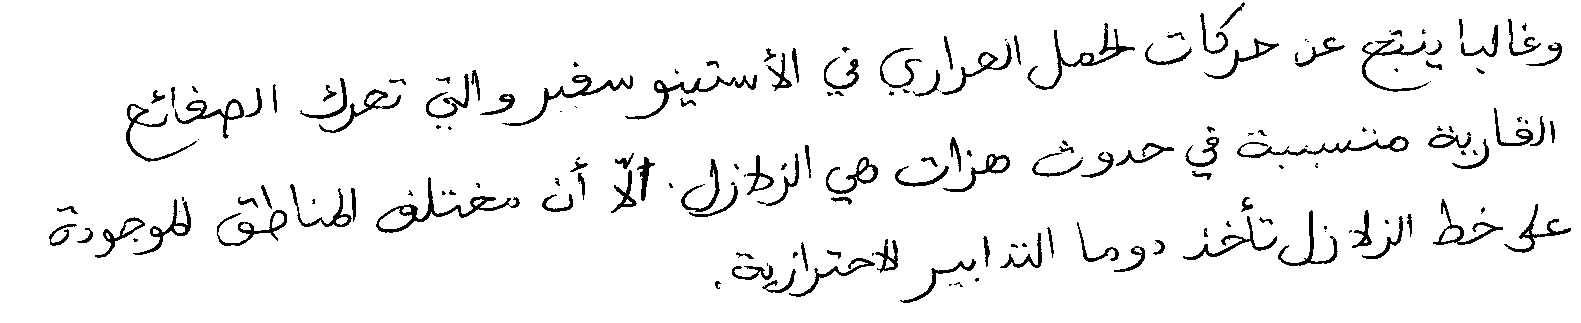 وغالبا ينتج عن حركات الحمل الحراري في الأستينو سفير والتي تحرك الصفائح
القارية متسببة في حدوث هزات هي الزلازل. ألّا أن مختلف المناطق الموجودة
على خط الزلازل تأخذ دوما التدابير الاحترازية.